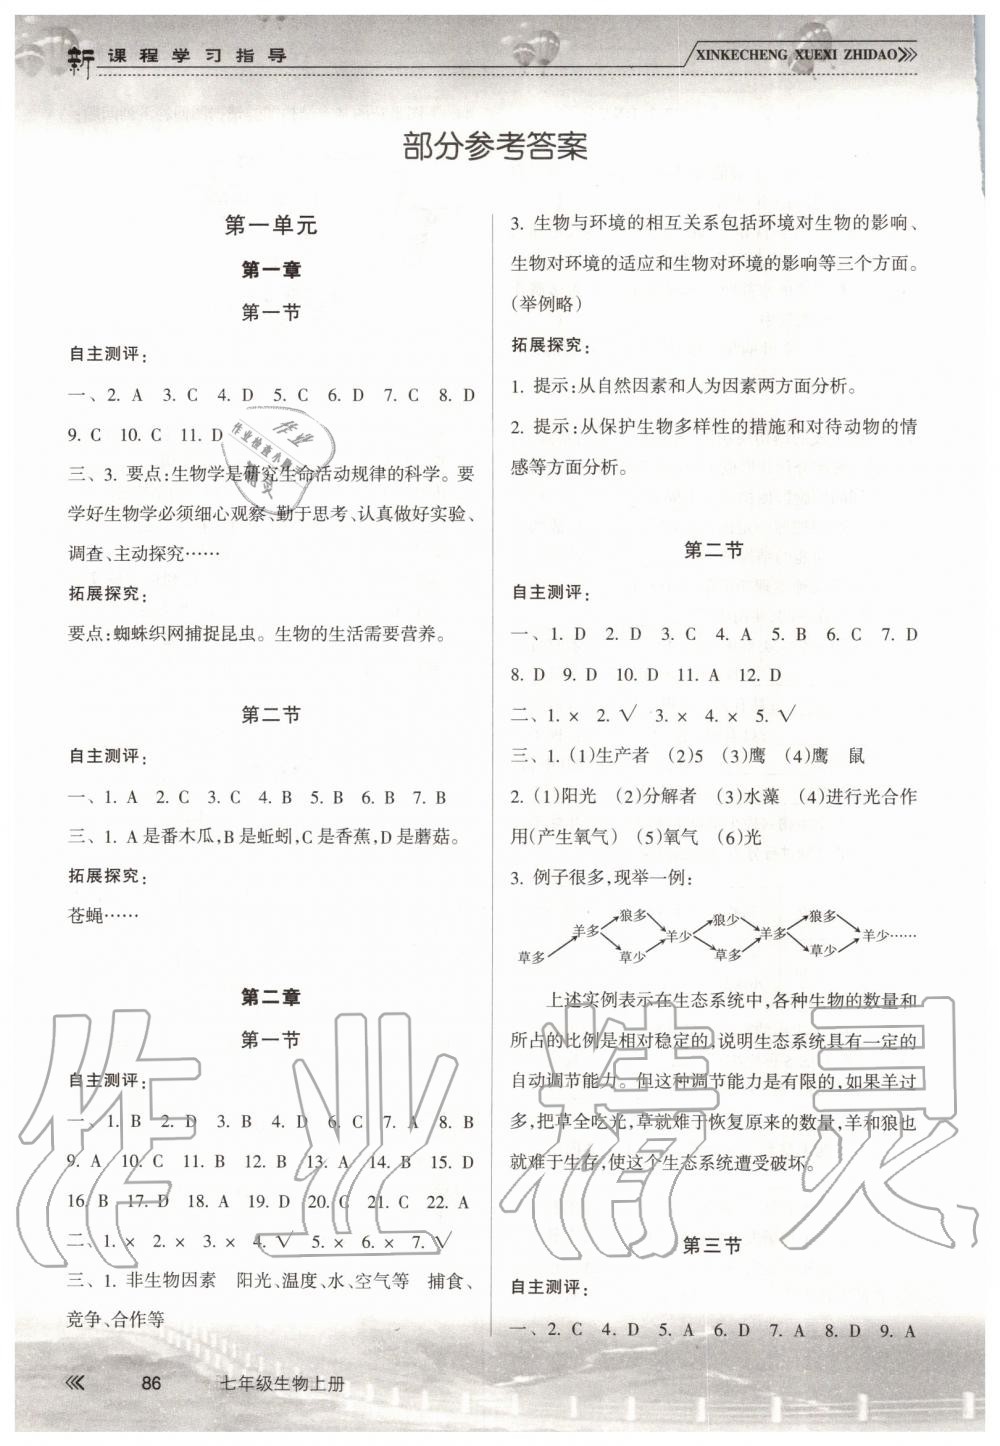 新课程学习指导
XINKECHENG XUEXI ZHIDAO
部分参考答案
第一单元
第一章
第一节
自主测评：
一、2. A 3. C 4. D 5. C 6. D 7. C 8. D
9. C 10. C 11. D
三、3. 要点：生物学是研究生命活动规律的科学。要
学好生物学必须细心观察、勤于思考、认真做好实验、
调查、主动探究……
拓展探究：
要点：蜘蛛织网捕捉昆虫。生物的生活需要营养。
第二节
自主测评：
一、1. A 2. C 3. C 4. B 5. B 6. B 7. B
三、1. A是番木瓜，B是蚯蚓，C是香蕉，D是蘑菇。
拓展探究：
苍蝇……
第二章
第一节
自主测评：
一、1. B 2. D 3. C 4. D 5. C 6. C 7. A 8. B
9. A 10. C 11. B 12. B 13. A 14. B 15. D
16. B 17. D 18. A 19. D 20. C 21. C 22. A
二、1. × 2. × 3. × 4. √ 5. × 6. × 7. √
三、1. 非生物因素 阳光、温度、水、空气等 捕食、
竞争、合作等
3. 生物与环境的相互关系包括环境对生物的影响、
生物对环境的适应和生物对环境的影响等三个方面。
（举例略）
拓展探究：
1. 提示：从自然因素和人为因素两方面分析。
2. 提示：从保护生物多样性的措施和对待动物的情
感等方面分析。
第二节
自主测评：
一、1. D 2. D 3. C 4. A 5. B 6. C 7. D
8. D 9. D 10. D 11. A 12. D
二、1. × 2. √ 3. × 4. × 5. √
三、1. (1)生产者 (2)5 (3)鹰 (4)鹰 鼠
2. (1)阳光 (2)分解者 (3)水藻 (4)进行光合作
用(产生氧气) (5)氧气 (6)光
3. 例子很多，现举一例：
狼多 狼少 狼多
草多 羊多 羊少 羊多 羊少……
草少 草多 草少
上述实例表示在生态系统中，各种生物的数量和
所占的比例是相对稳定的，说明生态系统具有一定的
自动调节能力。但这种调节能力是有限的，如果羊过
多，把草全吃光，草就难于恢复原来的数量，羊和狼也
就难于生存，使这个生态系统遭受破坏。
第三节
自主测评：
一、2. C 4. D 5. A 6. D 7. D 8. D 9. A
86 七年级生物上册
作业精灵
作业
作业检查小助手